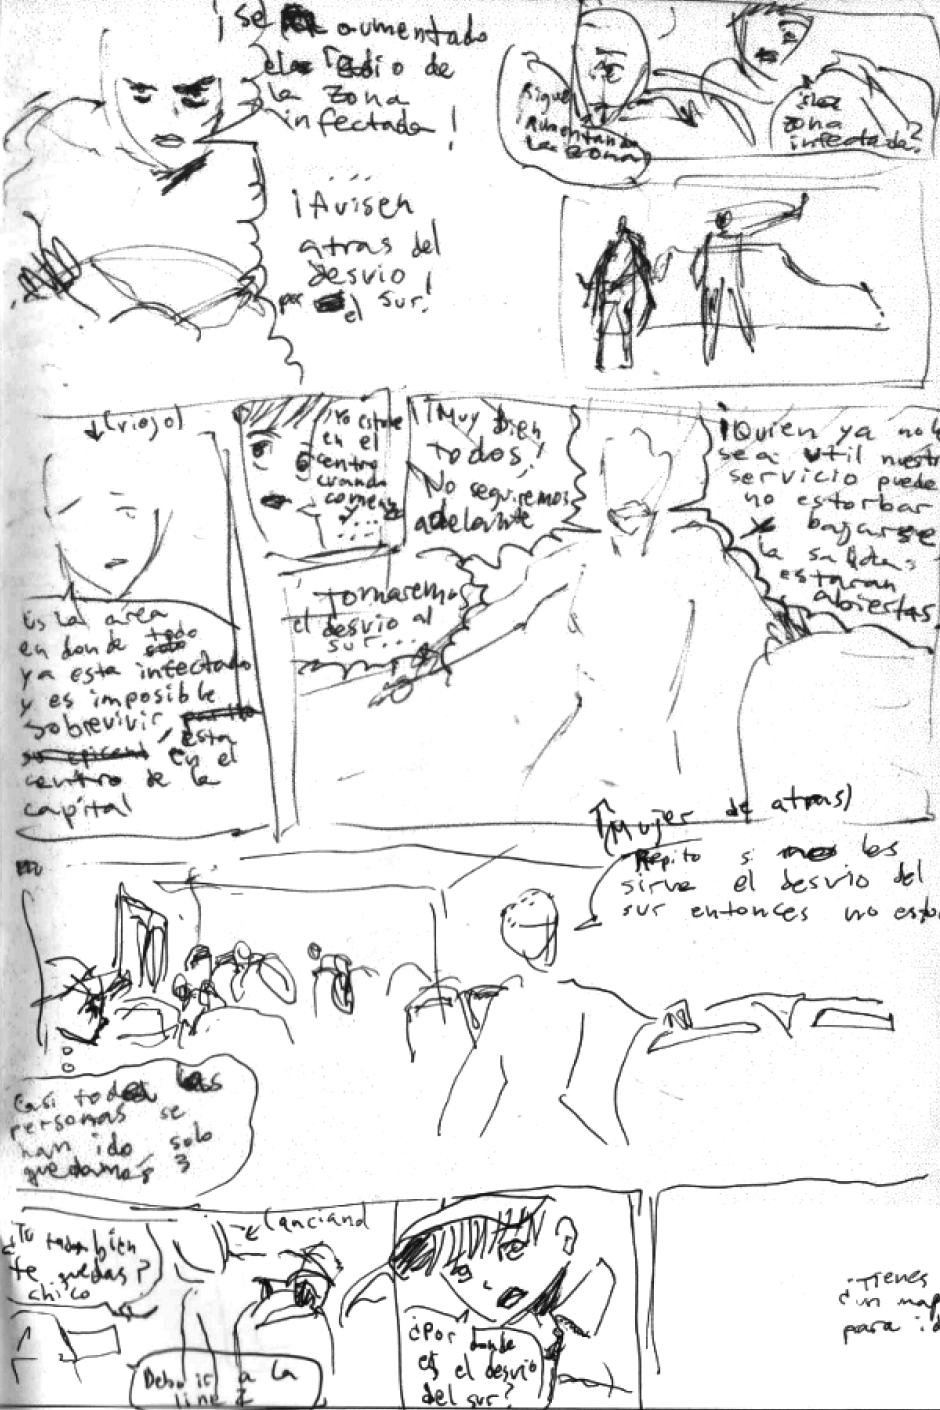 ¡Se aumentado
el radio de
la zona
infectada!
¡Avisen
atras del
desvio
por el sur!
Sigue
Aumentando
la zona
¿La
zona
infectada?
(viejo)
Es la area
en donde todo
ya esta infectado
y es imposible
sobrevivir,
esta
en el
centro de la
capital
Yo estuve
en el
centro
cuando
comenzo
y...
¡Muy bien
todos!
No seguiremos
adelante
tomaremos
el desvio al
sur...
¡Quien ya no le
sea util nuestro
servicio puede
no estorbar
y bajarse
la salidas
estaran
abiertas
(Mujer de atras)
Repito si no les
sirve el desvio del
sur entonces no esto
Casi todas las
personas se
han ido, solo
quedamos 3
(anciano)
¿Tu tambien
te quedas?
chico
Debo ir a la
linea 2
¿Por donde
es el desvio
del sur?
¿Tienes
un map
para i